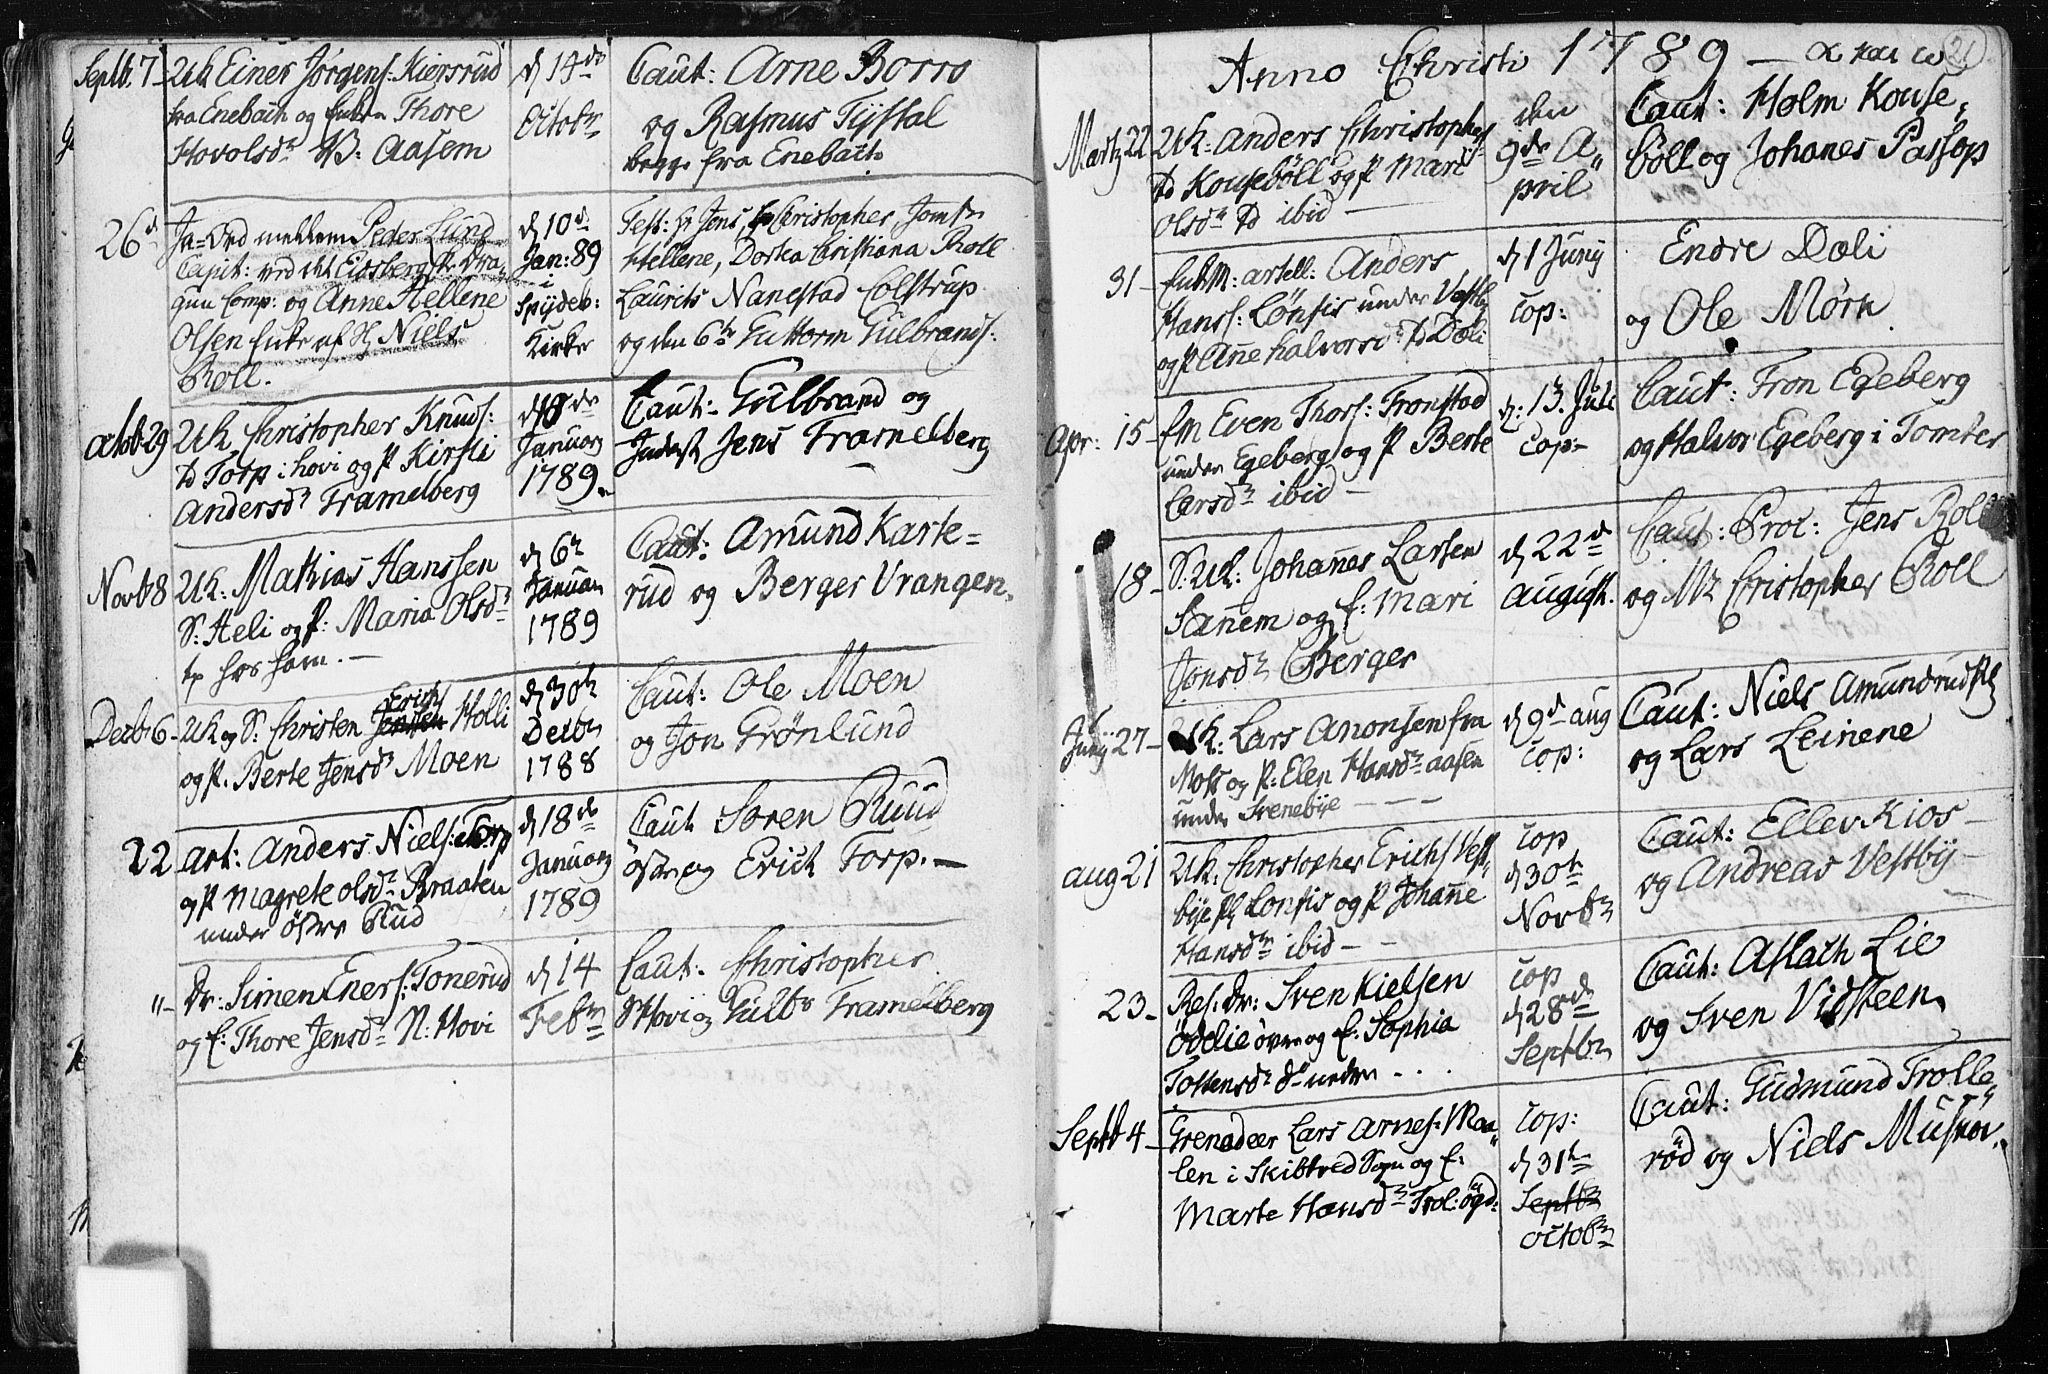 Septb. 7 - UK Einer Jörgens: Kiersrud
fra Enebach og Enken Thore
Hovolsdr V: Aasem
d 14de
Octobr
Caut: Arne Borro
og Rasmus Tystal
begge fra Enebach
26d Ja-Ord mellem Peder Lund
Capit: ved det Eidsberg Dra-
gun Comp: og Anne Hellene
Olsen Enke af H Niels
Roll.
d 10d
Jan: 89
i
Spydeb:
Kirke
Test: Hr Jens, Christopher, Jomfr
Hellene, Dortea Cristiana Roll
Laurits Nanestad Colstrup
og den 6te Guttorm Gulbrands:
octob: 29 UK Christopher Knuds:
Torp i hovi og P Kirsti
Andersdr Framelberg
d 18de
Januar
1789.
Caut: Gulbrand og
Jens Framelberg
Novb 8 UK: Mathias Hanssen
S: Heli og P: Maria Olsdr
hos ham. -
d 6te
Januar
1789
Caut: Amund Karte-
rud og Berger Vrangen.
Decb: 6 - UK og S: Christen Jensen Erichs Holli
og P. Berte Jensdr Moen
d 30te
Decbr
1788
Caut: Ole Moen
og Jon Grönlund
22 art: Anders Niels: Torp
og P Magrete olsdr Braaten
under östre Rud
d 18de
Januar
1789
Caut Soren Ruud
östre og Erich Torp. -
"- Dr: Simen Eners: Tonerud
og E: Thore Jensdr N: Hovi
d 14
Febr
Caut: Christopher
S Hovi og Gulbr Framelberg
Anno Christi 1789 -
21
Martz 22 UK: Anders Christophers:
Kouseböll og P Mari
Olsdr ibid -
den
9de A"
pril
Caut: Holm Kouse"
böll og Johanes Passop
31 - Enkm: artell: Anders
Hanss: Lönsis under Vestby
og P Anne halvorsd: Dæli
d 1 Junij
Cop:
Endre Dæli
og Ole Mörk
Apr: 15 - Em Even Thors: Fronstad
under Egeberg og P Berte
Larsdr ibid -
d: 13. Juli
Cop:
Caut: Fron Egeberg
og Halvor Egeberg i Tomter
18 - S: UK: Johannes Larsen
Sanem og E: Mari
Jonsdr Berger
d 22de
August.
Caut: Proc: Jens Roll
og Mr Christopher Roll
Junij 27 - UK: Lars Anonsen fra
Mos og P: Elen Hansdr aasen
under Svenebye - - -
d 9d aug
Cop:
Caut: Niels Amundrud
og Lars Leinene
aug 21 UK: Christopher Erichs Vest"
bye Lonsis og P Johanne
Hansdr ibid - -
Cop
d 30te
Novbr
Caut: Ellev Kios -
og Andreas Vestby -
23 - Res: Dr: Sven Kielsen
Oddie övre og E: Sophia
Tostensdr neden . . .
Cop
d 28de
Septbr
Caut: Aslach Lie
og Sven Vidsteen
Septb 4 - Grenadeer Lars Arnes: Maa"
len i Skibtved Sogn og E:
Marte Hansdr Trol:ögd:
Cop:
d 31te
Septbr
octobr
Caut: Gudmund Trolle"
röd og Niels Musrov.